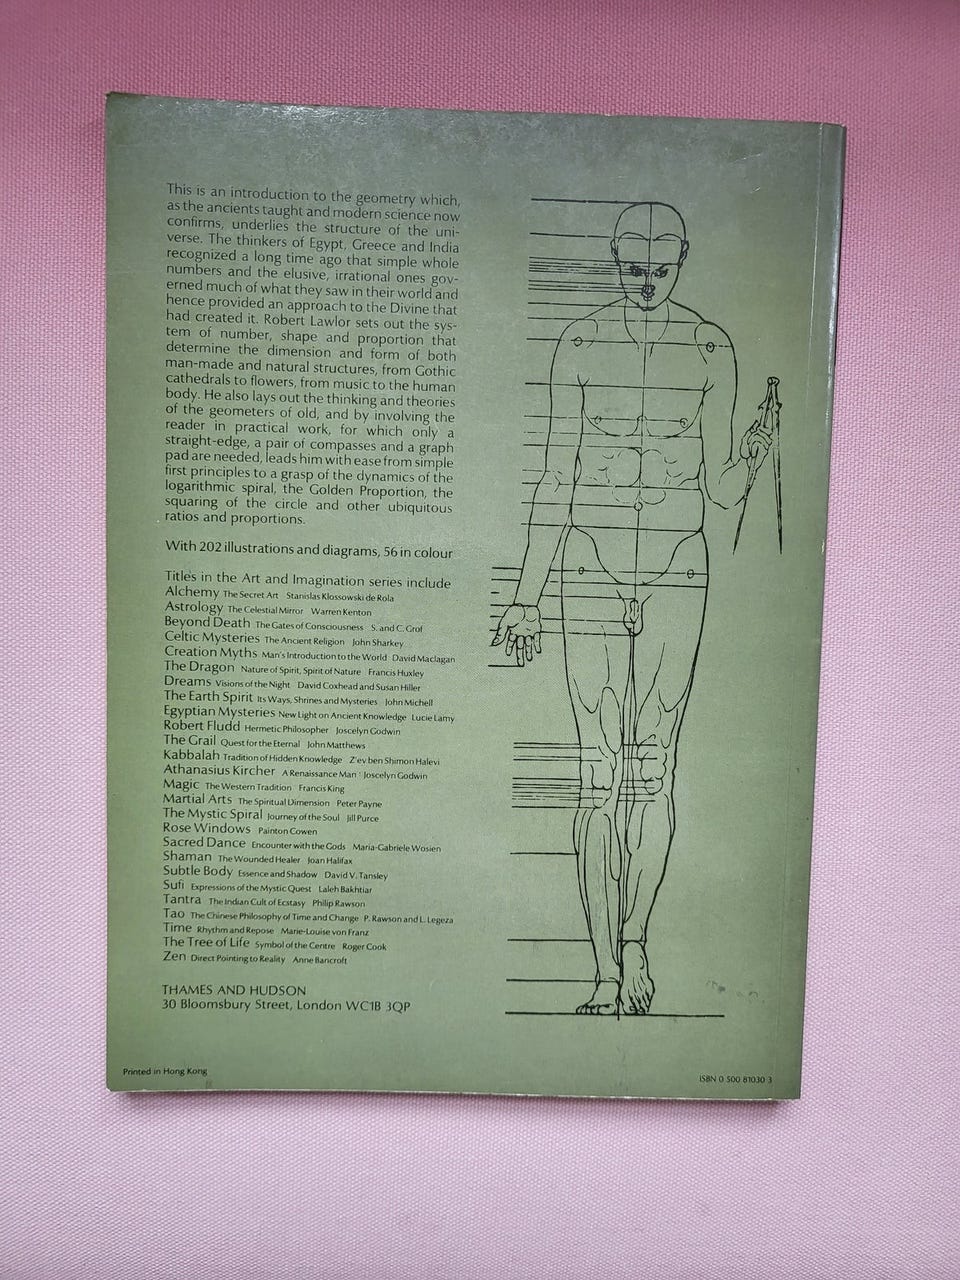 This is an introduction to the geometry which,
as the ancients taught and modern science now
confirms, underlies the structure of the uni-
verse. The thinkers of Egypt, Greece and India
recognized a long time ago that simple whole
numbers and the elusive, irrational ones gov-
erned much of what they saw in their world and
hence provided an approach to the Divine that
had created it. Robert Lawlor sets out the sys-
tem of number, shape and proportion that
determine the dimension and form of both
man-made and natural structures, from Gothic
cathedrals to flowers, from music to the human
body. He also lays out the thinking and theories
of the geometers of old, and by involving the
reader in practical work, for which only a
straight-edge, a pair of compasses and a graph
pad are needed, leads him with ease from simple
first principles to a grasp of the dynamics of the
logarithmic spiral, the Golden Proportion, the
squaring of the circle and other ubiquitous
ratios and proportions.
With 202 illustrations and diagrams, 56 in colour
Titles in the Art and Imagination series include
Alchemy The Secret Art Stanislas Klossowski de Rola
Astrology The Celestial Mirror Warren Kenton
Beyond Death The Gates of Consciousness S. and C. Grof
Celtic Mysteries The Ancient Religion John Sharkey
Creation Myths Man's Introduction to the World David Maclagan
The Dragon Nature of Spirit, Spirit of Nature Francis Huxley
Dreams Visions of the Night David Coxhead and Susan Hiller
The Earth Spirit Its Ways, Shrines and Mysteries John Michell
Egyptian Mysteries New Light on Ancient Knowledge Lucie Lamy
Robert Fludd Hermetic Philosopher Joscelyn Godwin
The Grail Quest for the Eternal John Matthews
Kabbalah Tradition of Hidden Knowledge Z'ev ben Shimon Halevi
Athanasius Kircher A Renaissance Man Joscelyn Godwin
Magic The Western Tradition Francis King
Martial Arts The Spiritual Dimension Peter Payne
The Mystic Spiral Journey of the Soul Jill Purce
Rose Windows Painton Cowen
Sacred Dance Encounter with the Gods Maria-Gabriele Wosien
Shaman The Wounded Healer Joan Halifax
Subtle Body Essence and Shadow David V. Tansley
Sufi Expressions of the Mystic Quest Laleh Bakhtiar
Tantra The Indian Cult of Ecstasy Philip Rawson
Tao The Chinese Philosophy of Time and Change P. Rawson and L. Legeza
Time Rhythm and Repose Marie-Louise von Franz
The Tree of Life Symbol of the Centre Roger Cook
Zen Direct Pointing to Reality Anne Bancroft
THAMES AND HUDSON
30 Bloomsbury Street, London WC1B 3QP
Printed in Hong Kong
ISBN 0 500 81030 3